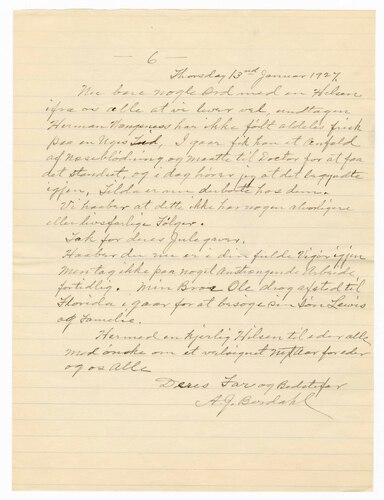 — 6 —
Thorsdag 13nd Januar 1927.
Nu bare nogle Ord med en Hilsen
ifra os alle at vi lever vel, undtagen
Herman har ikke følt aldeles frisk
paa en Uges Tid, I gaar fik han et Anfald
af Næseblödning og maatte til Doctor for at faa
det standset, og i dag hörer jeg at det begyndte
igjen, Tilda er nu hos dem.
Vi haaber at dette ikke har nogen alvorligere
eller livsfarlige Fölger.
Tak for deres Julegaver.
Haaber du nu er i din fulde Vigör igjen
Men tag ikke paa noget Anstrengende Arbeide
fortidlig. Min Bror Ole drog afsted til
Florida i gaar for at besöge sin Sön Lewis
og Familie.
Hermed en kjerlig Hilsen til eder alle
med önske om et velsignet Nytaar for eder
og os Alle
Deres Far og Bedstefar
A. J. Berdahl